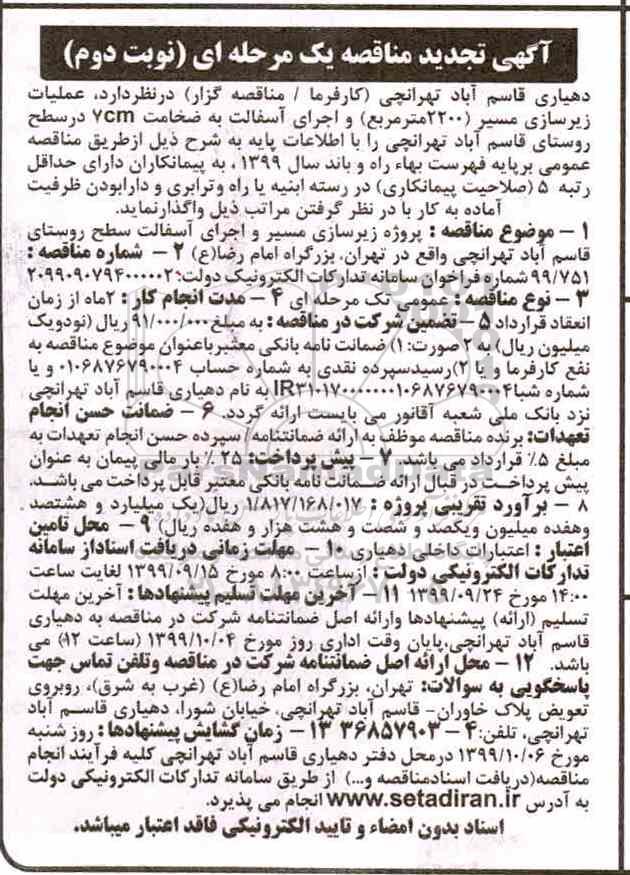 آگهی تجدید مناقصه یک مرحله ای (نوبت دوم)
دهیاری قاسم آباد تهرانچی (کارفرما / مناقصه گزار) درنظردارد، عملیات
زیرسازی مسیر (۲۲۰۰مترمربع) و اجرای آسفالت به ضخامت ۷cm درسطح
روستای قاسم آباد تهرانچی را با اطلاعات پایه به شرح ذیل ازطریق مناقصه
عمومی برپایه فهرست بهاء راه و باند سال ۱۳۹۹ ، به پیمانکاران دارای حداقل
رتبه ۵ (صلاحیت پیمانکاری) در رسته ابنیه یا راه وترابری و دارابودن ظرفیت
آماده به کار با در نظر گرفتن مراتب ذیل واگذارنماید.
۱ – موضوع مناقصه : پروژه زیرسازی مسیر و اجرای آسفالت سطح روستای
قاسم آباد تهرانچی واقع در تهران، بزرگراه امام رضا(ع) ۲ – شماره مناقصه :
۹۹/۷۵۱ شماره فراخوان سامانه تدارکات الکترونیک دولت: ۲۰۹۹۰۹۰۷۹۴۰۰۰۰۰۲
۳ – نوع مناقصه : عمومی تک مرحله ای ۴ – مدت انجام کار : ۲ماه از زمان
انعقاد قرارداد ۵ – تضمین شرکت در مناقصه : به مبلغ ۹۱/۰۰۰/۰۰۰ ریال (نودویک
میلیون ریال) به ۲ صورت: ۱) ضمانت نامه بانکی معتبرباعنوان موضوع مناقصه به
نفع کارفرما و یا ۲)رسیدسپرده نقدی به شماره حساب ۰۱۰۶۸۷۶۷۹۰۰۰۴ و یا
شماره شبا IR۳۱۰۱۷۰۰۰۰۰۰۱۰۶۸۷۶۷۹۰۰۰۴ به نام دهیاری قاسم آباد تهرانچی
نزد بانک ملی شعبه آقانور می بایست ارائه گردد. ۶ – ضمانت حسن انجام
تعهدات: برنده مناقصه موظف به ارائه ضمانتنامه / سپرده حسن انجام تعهدات به
مبلغ ۵٪ قرارداد می باشد. ۷ – پیش پرداخت: ۲۵ ٪ بار مالی پیمان به عنوان
پیش پرداخت در قبال ارائه ضمانت نامه بانکی معتبر قابل پرداخت می باشد.
۸ – برآورد تقریبی پروژه : ۱/۸۱۷/۱۶۸/۰۱۷ ریال(یک میلیارد و هشتصد
وهفده میلیون ویکصد و شصت و هشت هزار و هفده ریال) ۹ – محل تامین
اعتبار : اعتبارات داخلی دهیاری ۱۰ – مهلت زمانی دریافت اسناداز سامانه
تدارکات الکترونیکی دولت : ازساعت ۸:۰۰ مورخ ۱۳۹۹/۰۹/۱۵ لغایت ساعت
۱۴:۰۰ مورخ ۱۳۹۹/۰۹/۲۴ ۱۱ – آخرین مهلت تسلیم پیشنهادها : آخرین مهلت
تسلیم (ارائه) پیشنهادها وارائه اصل ضمانتنامه شرکت در مناقصه به دهیاری
قاسم آباد تهرانچی،پایان وقت اداری روز مورخ ۱۳۹۹/۱۰/۰۴ (ساعت ۱۲) می
باشد. ۱۲ – محل ارائه اصل ضمانتنامه شرکت در مناقصه وتلفن تماس جهت
پاسخگویی به سوالات: تهران، بزرگراه امام رضا(ع) (غرب به شرق)، روبروی
تعویض پلاک خاوران- قاسم آباد تهرانچی، خیابان شورا، دهیاری قاسم آباد
تهرانچی، تلفن:۴ – ۳۶۸۵۷۹۰۳ ۱۳ – زمان گشایش پیشنهادها : روز شنبه
مورخ ۱۳۹۹/۱۰/۰۶ درمحل دفتر دهیاری قاسم آباد تهرانچی کلیه فرآیند انجام
مناقصه(دریافت اسنادمناقصه و...) از طریق سامانه تدارکات الکترونیکی دولت
به آدرس www.setadiran.ir انجام می پذیرد.
اسناد بدون امضاء و تایید الکترونیکی فاقد اعتبار میباشد.